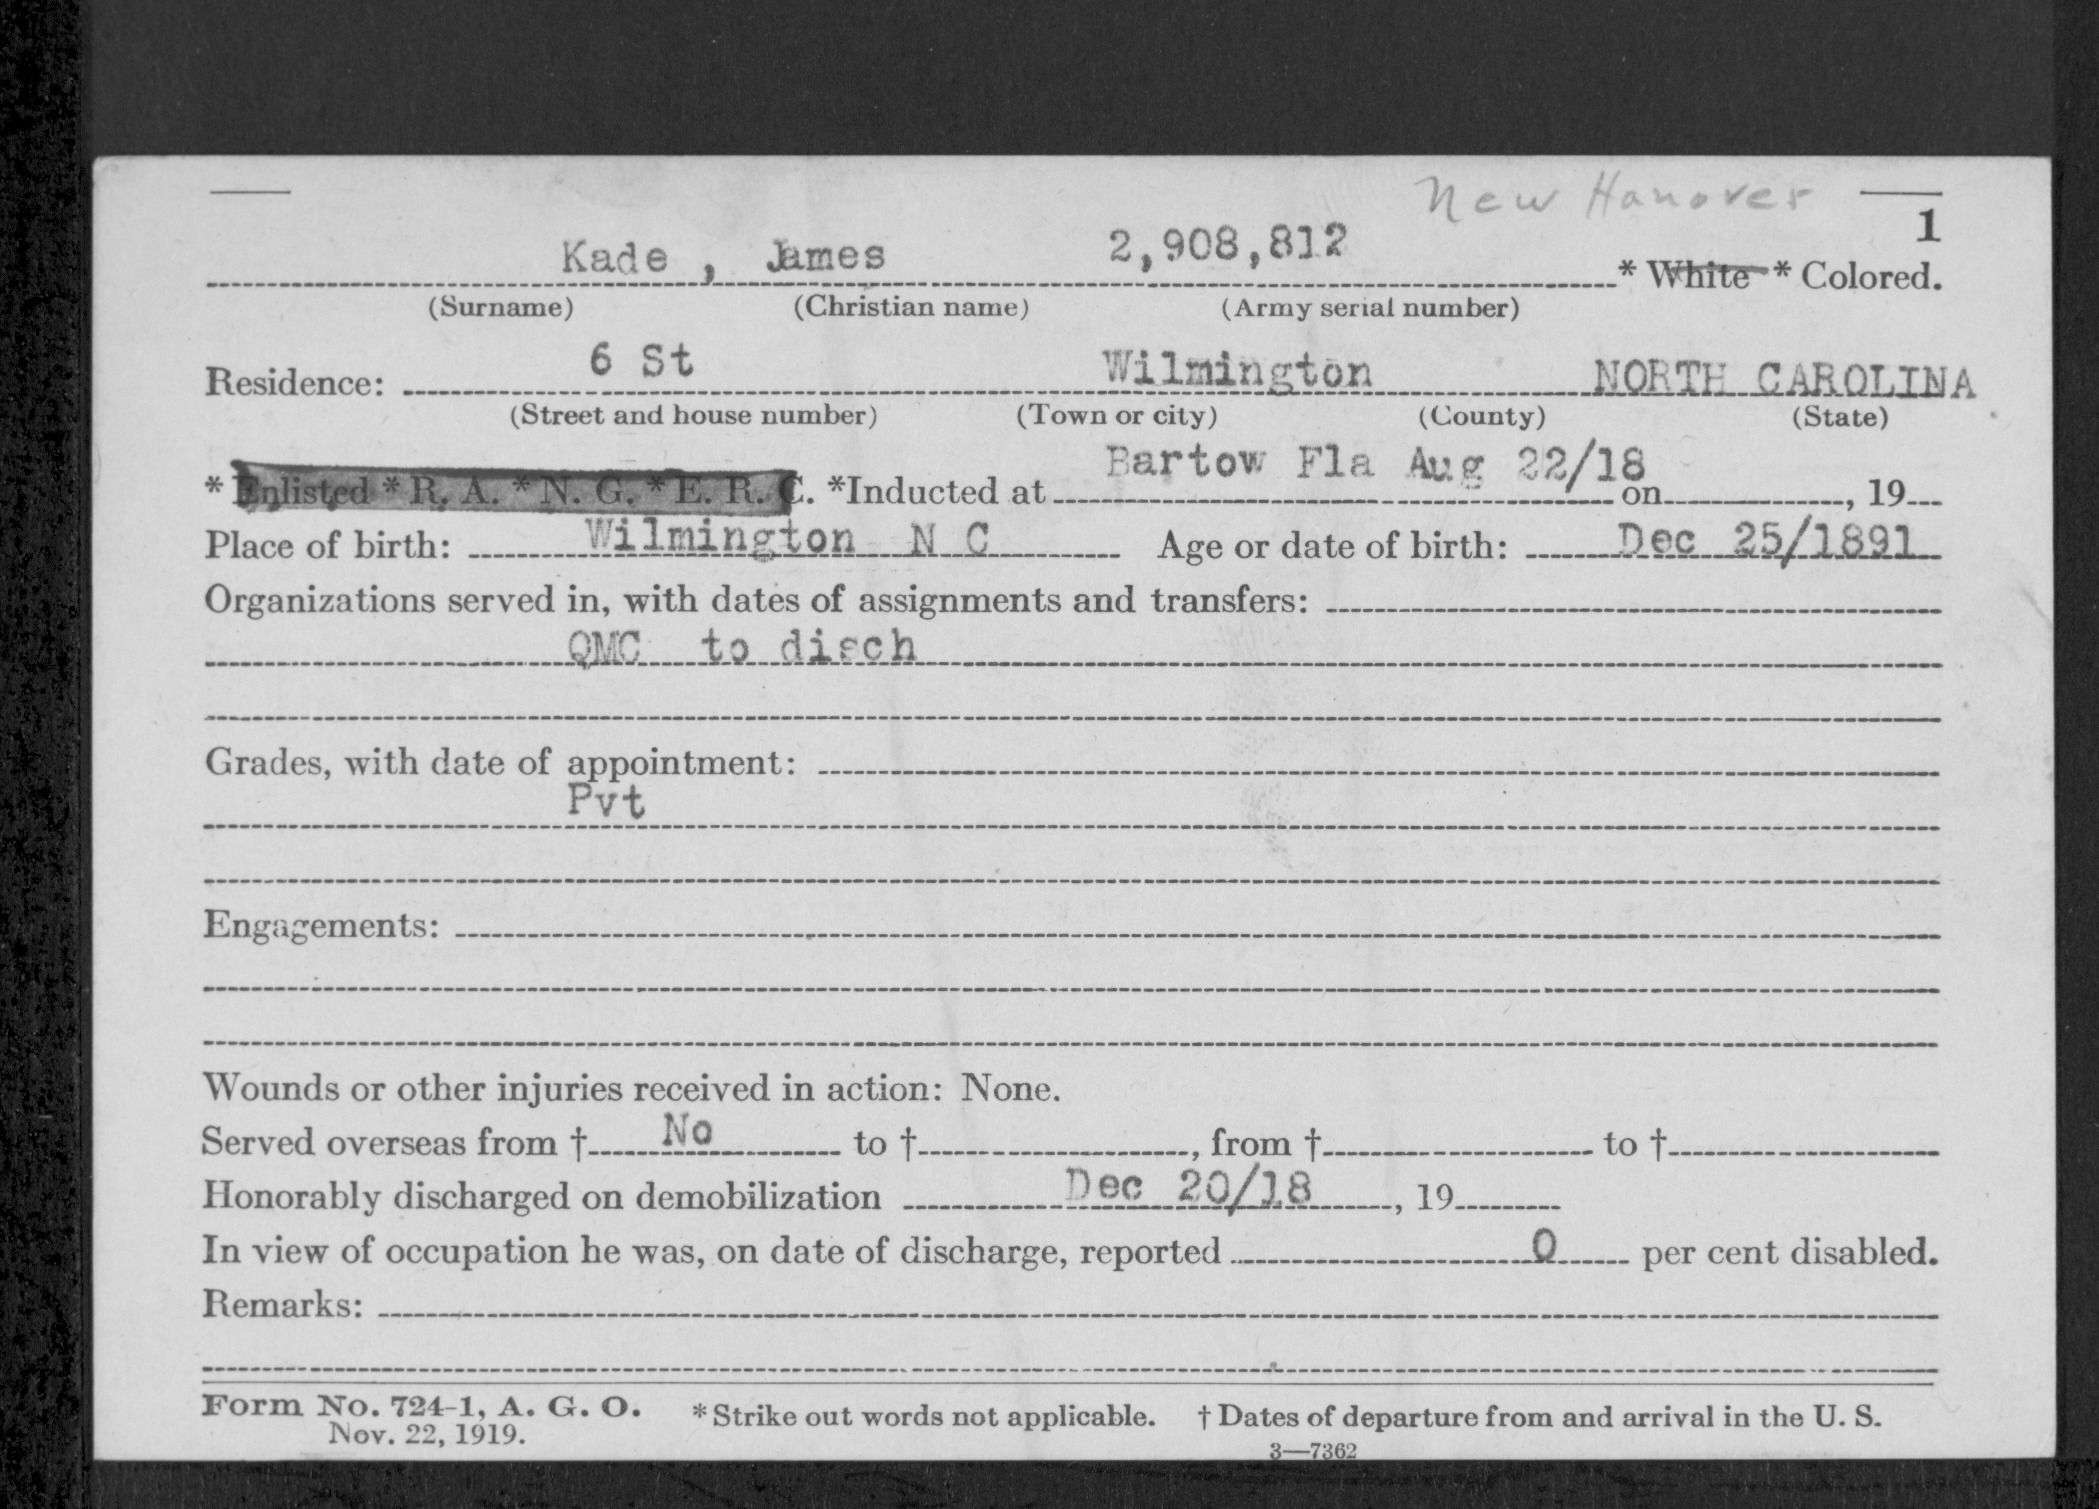 New Hanover
1
Kade , James 2,908,812 * White * Colored.
(Surname) (Christian name) (Army serial number)
Residence: 6 St Wilmington NORTH CAROLINA
(Street and house number) (Town or city) (County) (State)
* Enlisted * R. A. * N. G. * E. R. C. *Inducted at Bartow Fla Aug 22/18 on , 19
Place of birth: Wilmington N C Age or date of birth: Dec 25/1891
Organizations served in, with dates of assignments and transfers:
QMC to disch
Grades, with date of appointment:
Pvt
Engagements:
Wounds or other injuries received in action: None.
Served overseas from † No to † , from † to †
Honorably discharged on demobilization Dec 20/18 , 19
In view of occupation he was, on date of discharge, reported 0 per cent disabled.
Remarks:
Form No. 724-1, A. G. O. * Strike out words not applicable. † Dates of departure from and arrival in the U. S.
Nov. 22, 1919.
3—7362